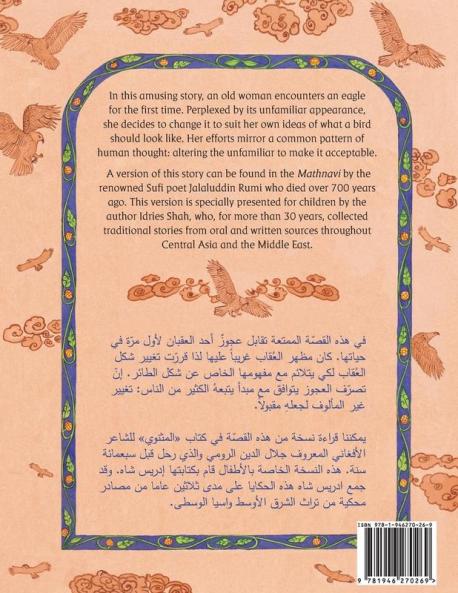 In this amusing story, an old woman encounters an eagle
for the first time. Perplexed by its unfamiliar appearance,
she decides to change it to suit her own ideas of what a bird
should look like. Her efforts mirror a common pattern of
human thought: altering the unfamiliar to make it acceptable.
A version of this story can be found in the Mathnavi by the
renowned Sufi poet Jalaluddin Rumi who died over 700 years
ago. This version is specially presented for children by the
author Idries Shah, who, for more than 30 years, collected
traditional stories from oral and written sources throughout
Central Asia and the Middle East.
في هذه القصّة الممتعة تقابل عجوزٌ أحد العقبان لأول مرّة في
حياتها. كان مظهر العُقاب غريباً عليها لذا قررّت تغيير شكل
العُقاب لكي يتلائم مع مفهومها الخاص عن شكل الطائر. إنّ
تصرّف العجوز يتوافق مع مبدأ يتبعهُ الكثير من الناس: تغيير
غير المألوف لجعلهِ مقبولاً.
يمكننا قراءة نسخة من هذه القصّة في كتاب «المثنوي» للشاعر
الأفغاني المعروف جلال الدين الرومي والذي رحل قبل سبعمائة
سنة. هذه النسخة الخاصة بالأطفال قام بكتابتها إدريس شاه. وقد
جمع ادريس شاه هذه الحكايا على مدى ثلاثين عاما من مصادر
محكية من تراث الشرق الأوسط واسيا الوسطى.
ISBN 978-1-946270-26-9
9 781946 270269